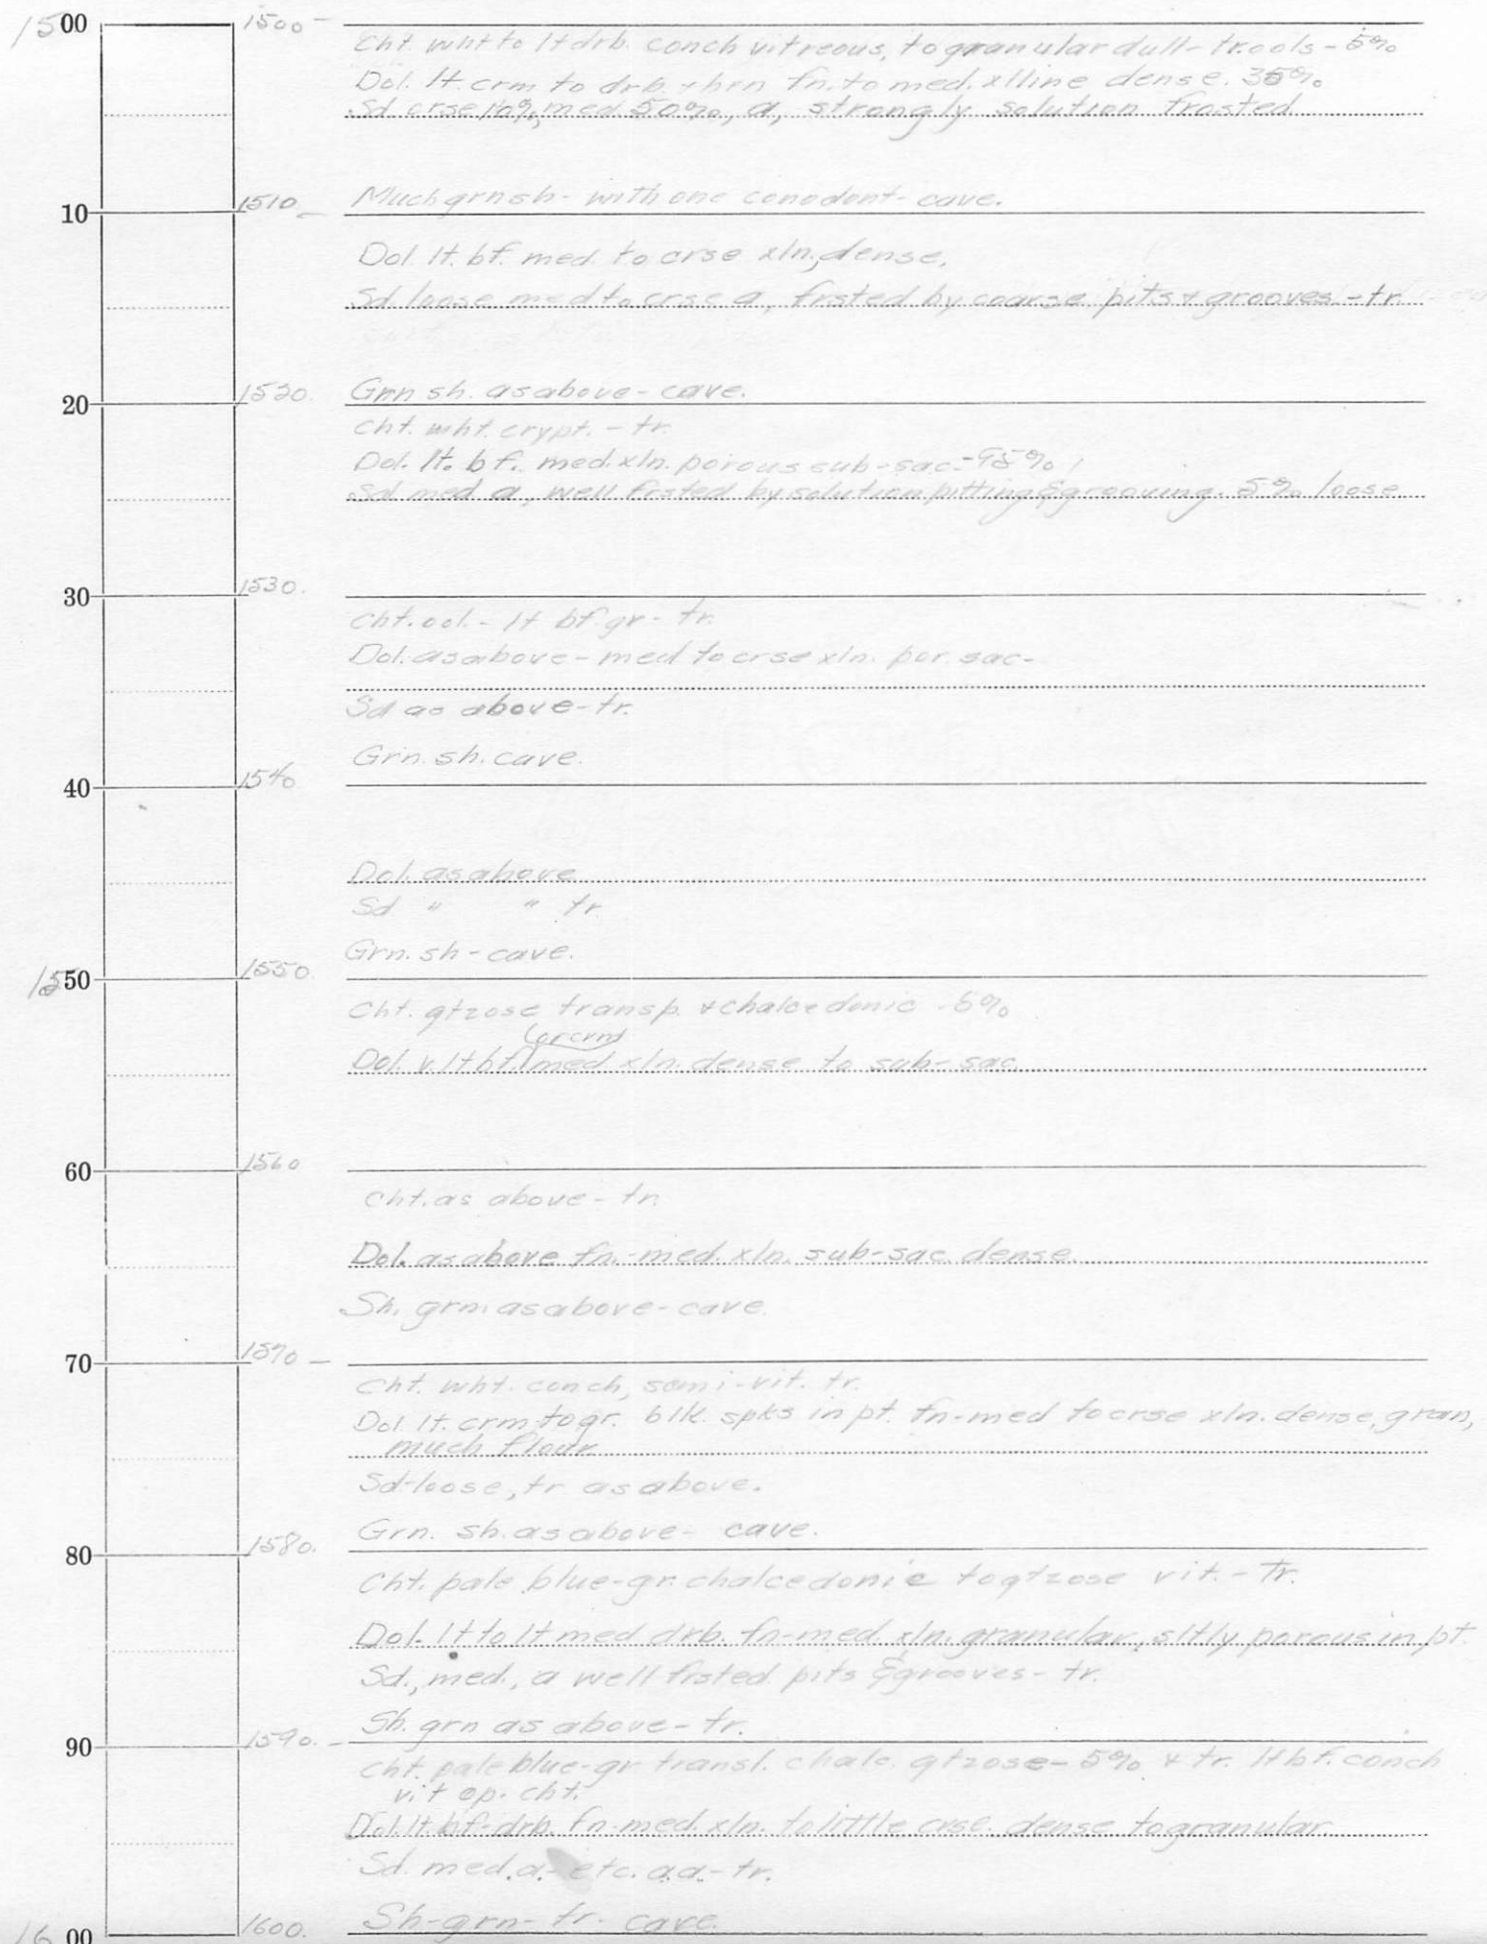 1500 1500 -
Cht. wht to lt drb. conch vitreous, to granular dull - tr. ools - 5%
Dol. lt. crm to drb. + brn fn. to med. xlline dense. 35%
Sd crse 10%, med 50%, a, strongly solution frosted.
Much grn sh - with one conodont - cave.
10 1510 -
Dol. lt. bf. med. to crse xln, dense.
Sd. loose med to crse a, frsted by coarse pits + grooves - tr.
Grn sh. as above - cave.
20 1520.
Cht. wht. crypt. - tr.
Dol. lt. bf. med. xln. porous sub-sac. - 95%
Sd. med a, well frsted by solution pitting & grooving. 5% loose
30 1530.
Cht. ool. - lt bf gr - tr.
Dol. as above - med to crse xln. por. sac -
Sd as above - tr.
Grn. sh. cave.
40 1540
Dol. as above
Sd " " tr
Grn. sh - cave.
1550 1550
Cht. qtzose transp. + chalcedonic - 5%
(or crm)
Dol. v. lt bf. med xln. dense to sub-sac.
60 1560
Cht. as above - tr.
Dol. as above fn.-med. xln. sub-sac. dense.
Sh. grn. as above - cave.
70 1570 -
Cht. wht. conch, semi-vit. tr.
Dol. lt. crm to gr. blk. spks in pt. fn-med to crse xln. dense, gran,
much flour
Sd - loose, tr as above.
Grn. sh. as above - cave.
80 1580.
Cht. pale blue-gr. chalcedonic to qtzose vit. - Tr.
Dol. lt to lt med drb. fn-med. xln. granular, sltly porous in pt.
Sd., med., a well frsted. pits & grooves - tr.
Sh. grn as above - tr.
90 1590. -
Cht. pale blue-gr transl. chalc. qtzose - 5% + tr. lt bf. conch
vit op. cht.
Dol. lt. bf - drb. fn-med. xln. to little crse. dense to granular.
Sd. med. a. - etc. a.a. - tr.
Sh - grn - tr. cave.
1600 1600.